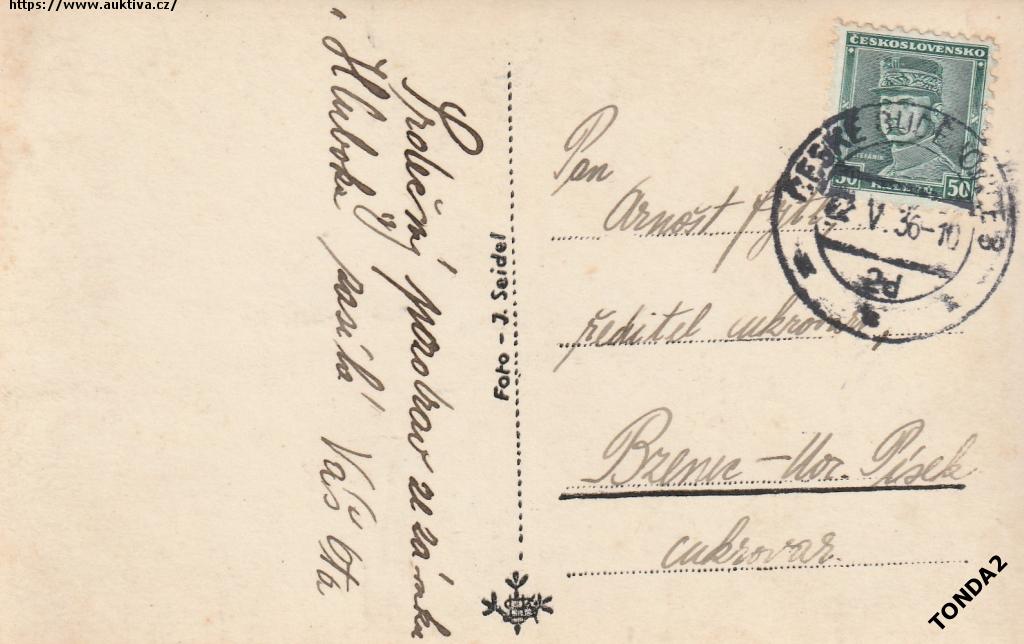 https://www.auktiva.cz/
Srdečný pozdrav ze zámku
Hluboká zasílá Váš Ota
Foto - J. Seidel
ČESKOSLOVENSKO
ŠTEFÁNIK
50 HALÉŘŮ 50
ČESKÉ BUDĚJOVICE 8
22 V. 36-10
Pan
Arnošt
ředitel cukrovaru,
Bzenec - Mor. Písek
cukrovar.
TONDA2